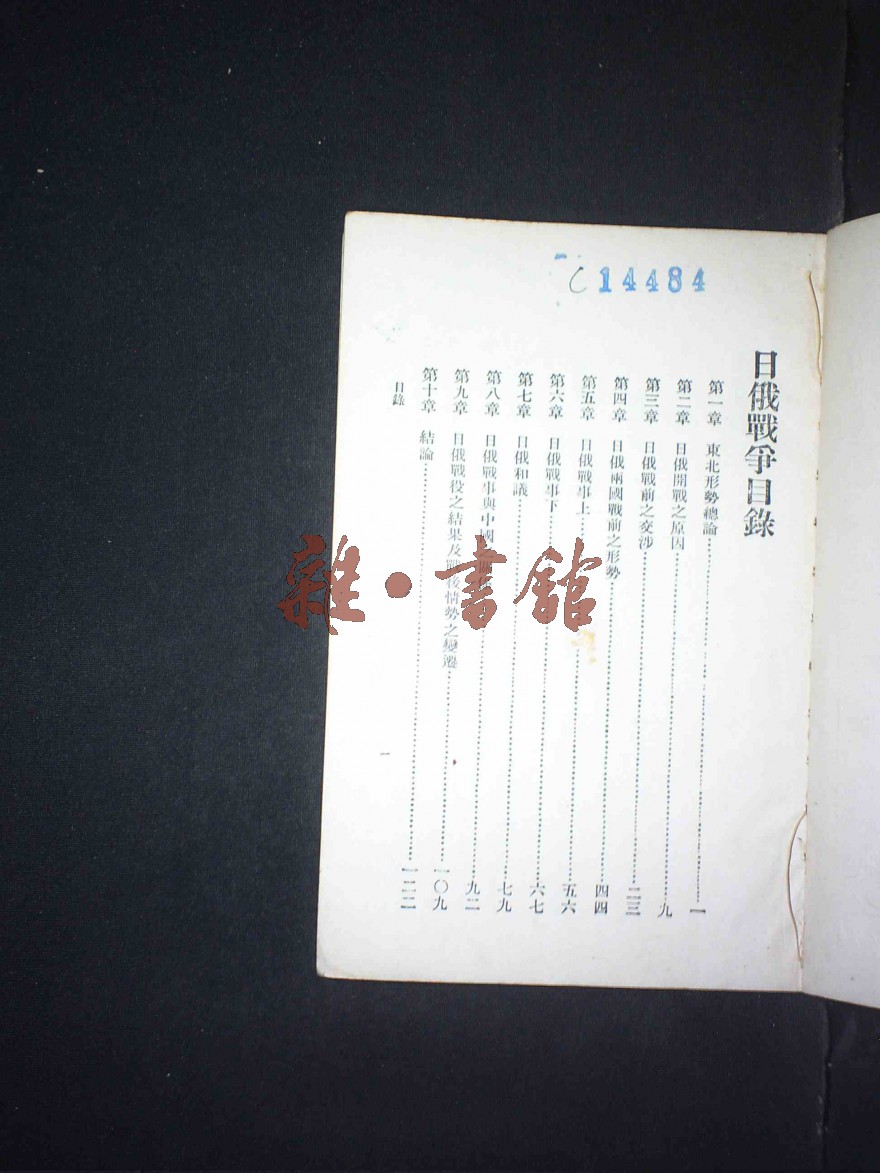 14484
日俄戰爭目錄
第一章 東北形勢總論 一
第二章 日俄開戰之原因 九
第三章 日俄戰前之交涉 二三
第四章 日俄兩國戰前之形勢 四四
第五章 日俄戰事上 五六
第六章 日俄戰事下 六七
第七章 日俄和議 七九
第八章 日俄戰事與中國 九二
第九章 日俄戰役之結果及戰後情勢之變遷 一〇九
第十章 結論 一二二
目錄 一
雜·書館